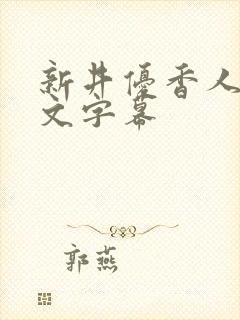 新井優香人
文字幕
郭燕